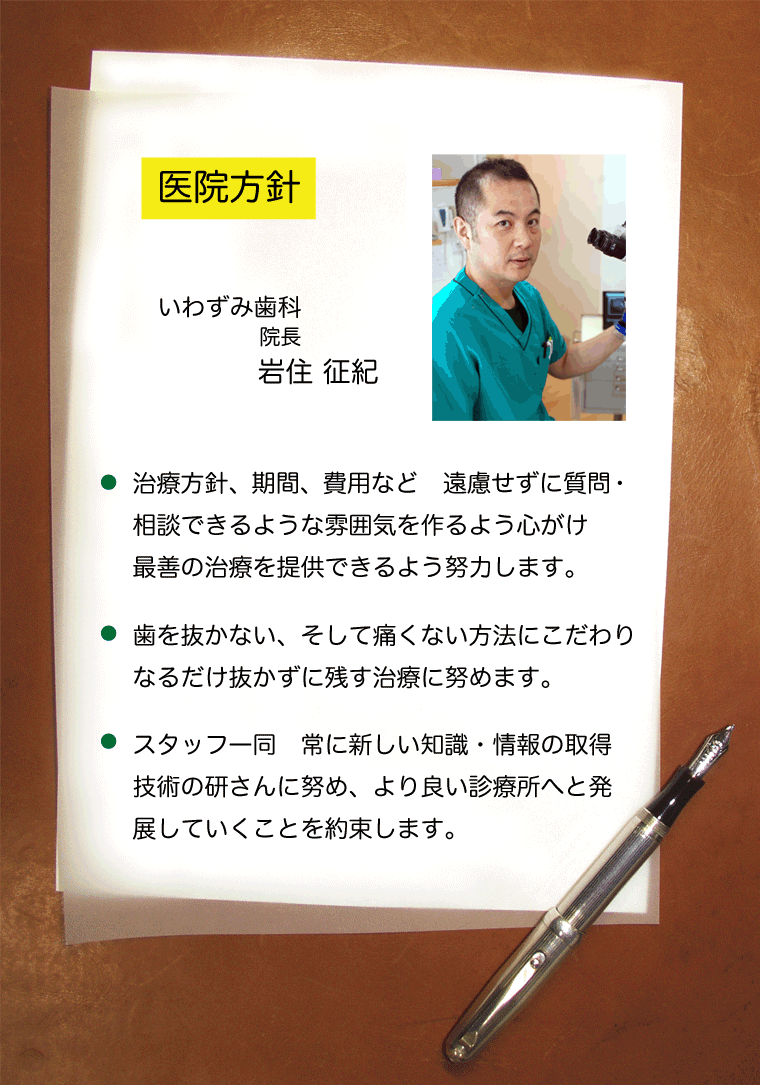 医院方針
いわずみ歯科
院長
岩住 征紀
● 治療方針、期間、費用など　遠慮せずに質問・
相談できるような雰囲気を作るよう心がけ
最善の治療を提供できるよう努力します。
● 歯を抜かない、そして痛くない方法にこだわり
なるだけ抜かずに残す治療に努めます。
● スタッフ一同　常に新しい知識・情報の取得
技術の研さんに努め、より良い診療所へと発
展していくことを約束します。